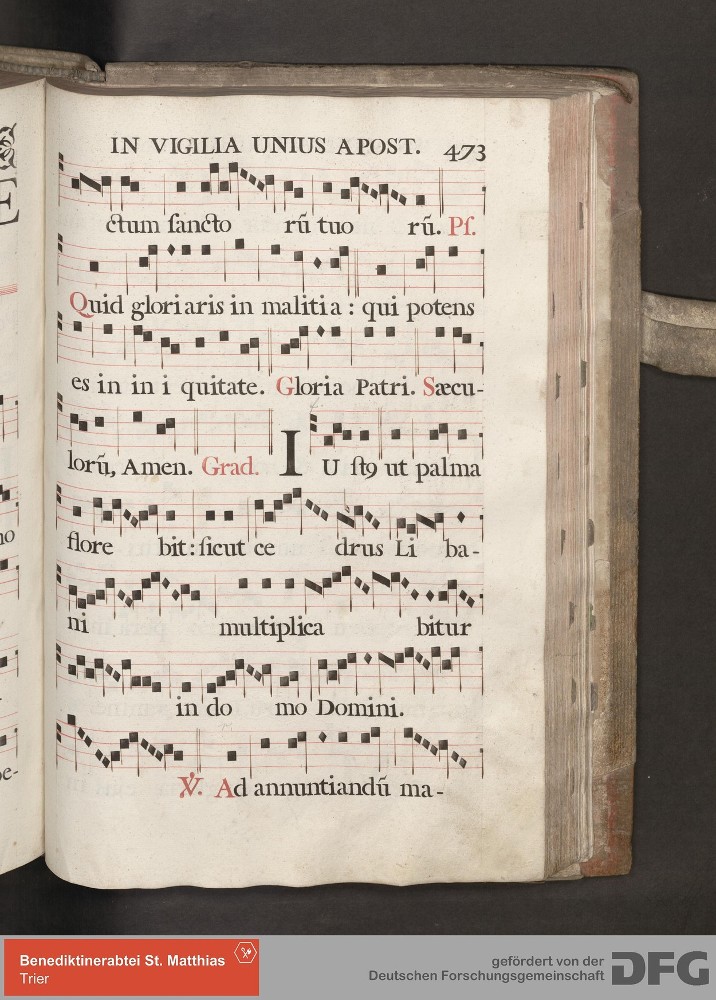 IN VIGILIA UNIUS APOST. 473
ctum sancto rũ tuo rũ. Ps.
Quid gloriaris in malitia : qui potens
es in in i quitate. Gloria Patri. Sæcu-
lorũ, Amen. Grad. IU stꝯ ut palma
flore bit : sicut ce drus Li ba-
ni multiplica bitur
in do mo Domini.
℣. Ad annuntiandũ ma-
Benediktinerabtei St. Matthias
Trier
gefördert von der
Deutschen Forschungsgemeinschaft DFG